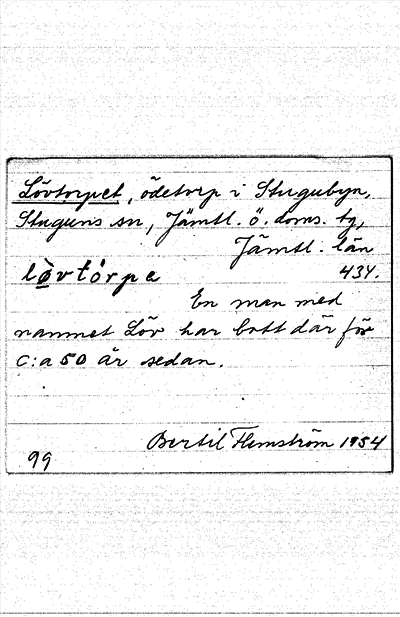 Lövtorpet, ödetorp i Stugubyn,
Stuguns sn, Jämtl. ö. doms. tg,
Jämtl. län
lòvtórpe 434.
En man med
namnet Löv har bott där för
c:a 50 år sedan.
Bertil Flemström 1954
99